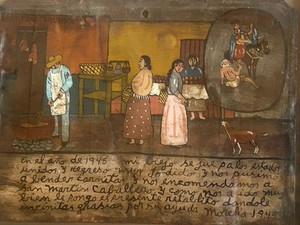 en el año de 1945 mi biejo se fue pa los estados
unidos Y regreso muy jodido Y nos pusimo
a bender carnitas Y nos encomendamos a
san Martin Caballero Y como nos a ido muy
bien le pongo el presente retablito dandole
infinitas grasias por su ayuda Morelia 1948